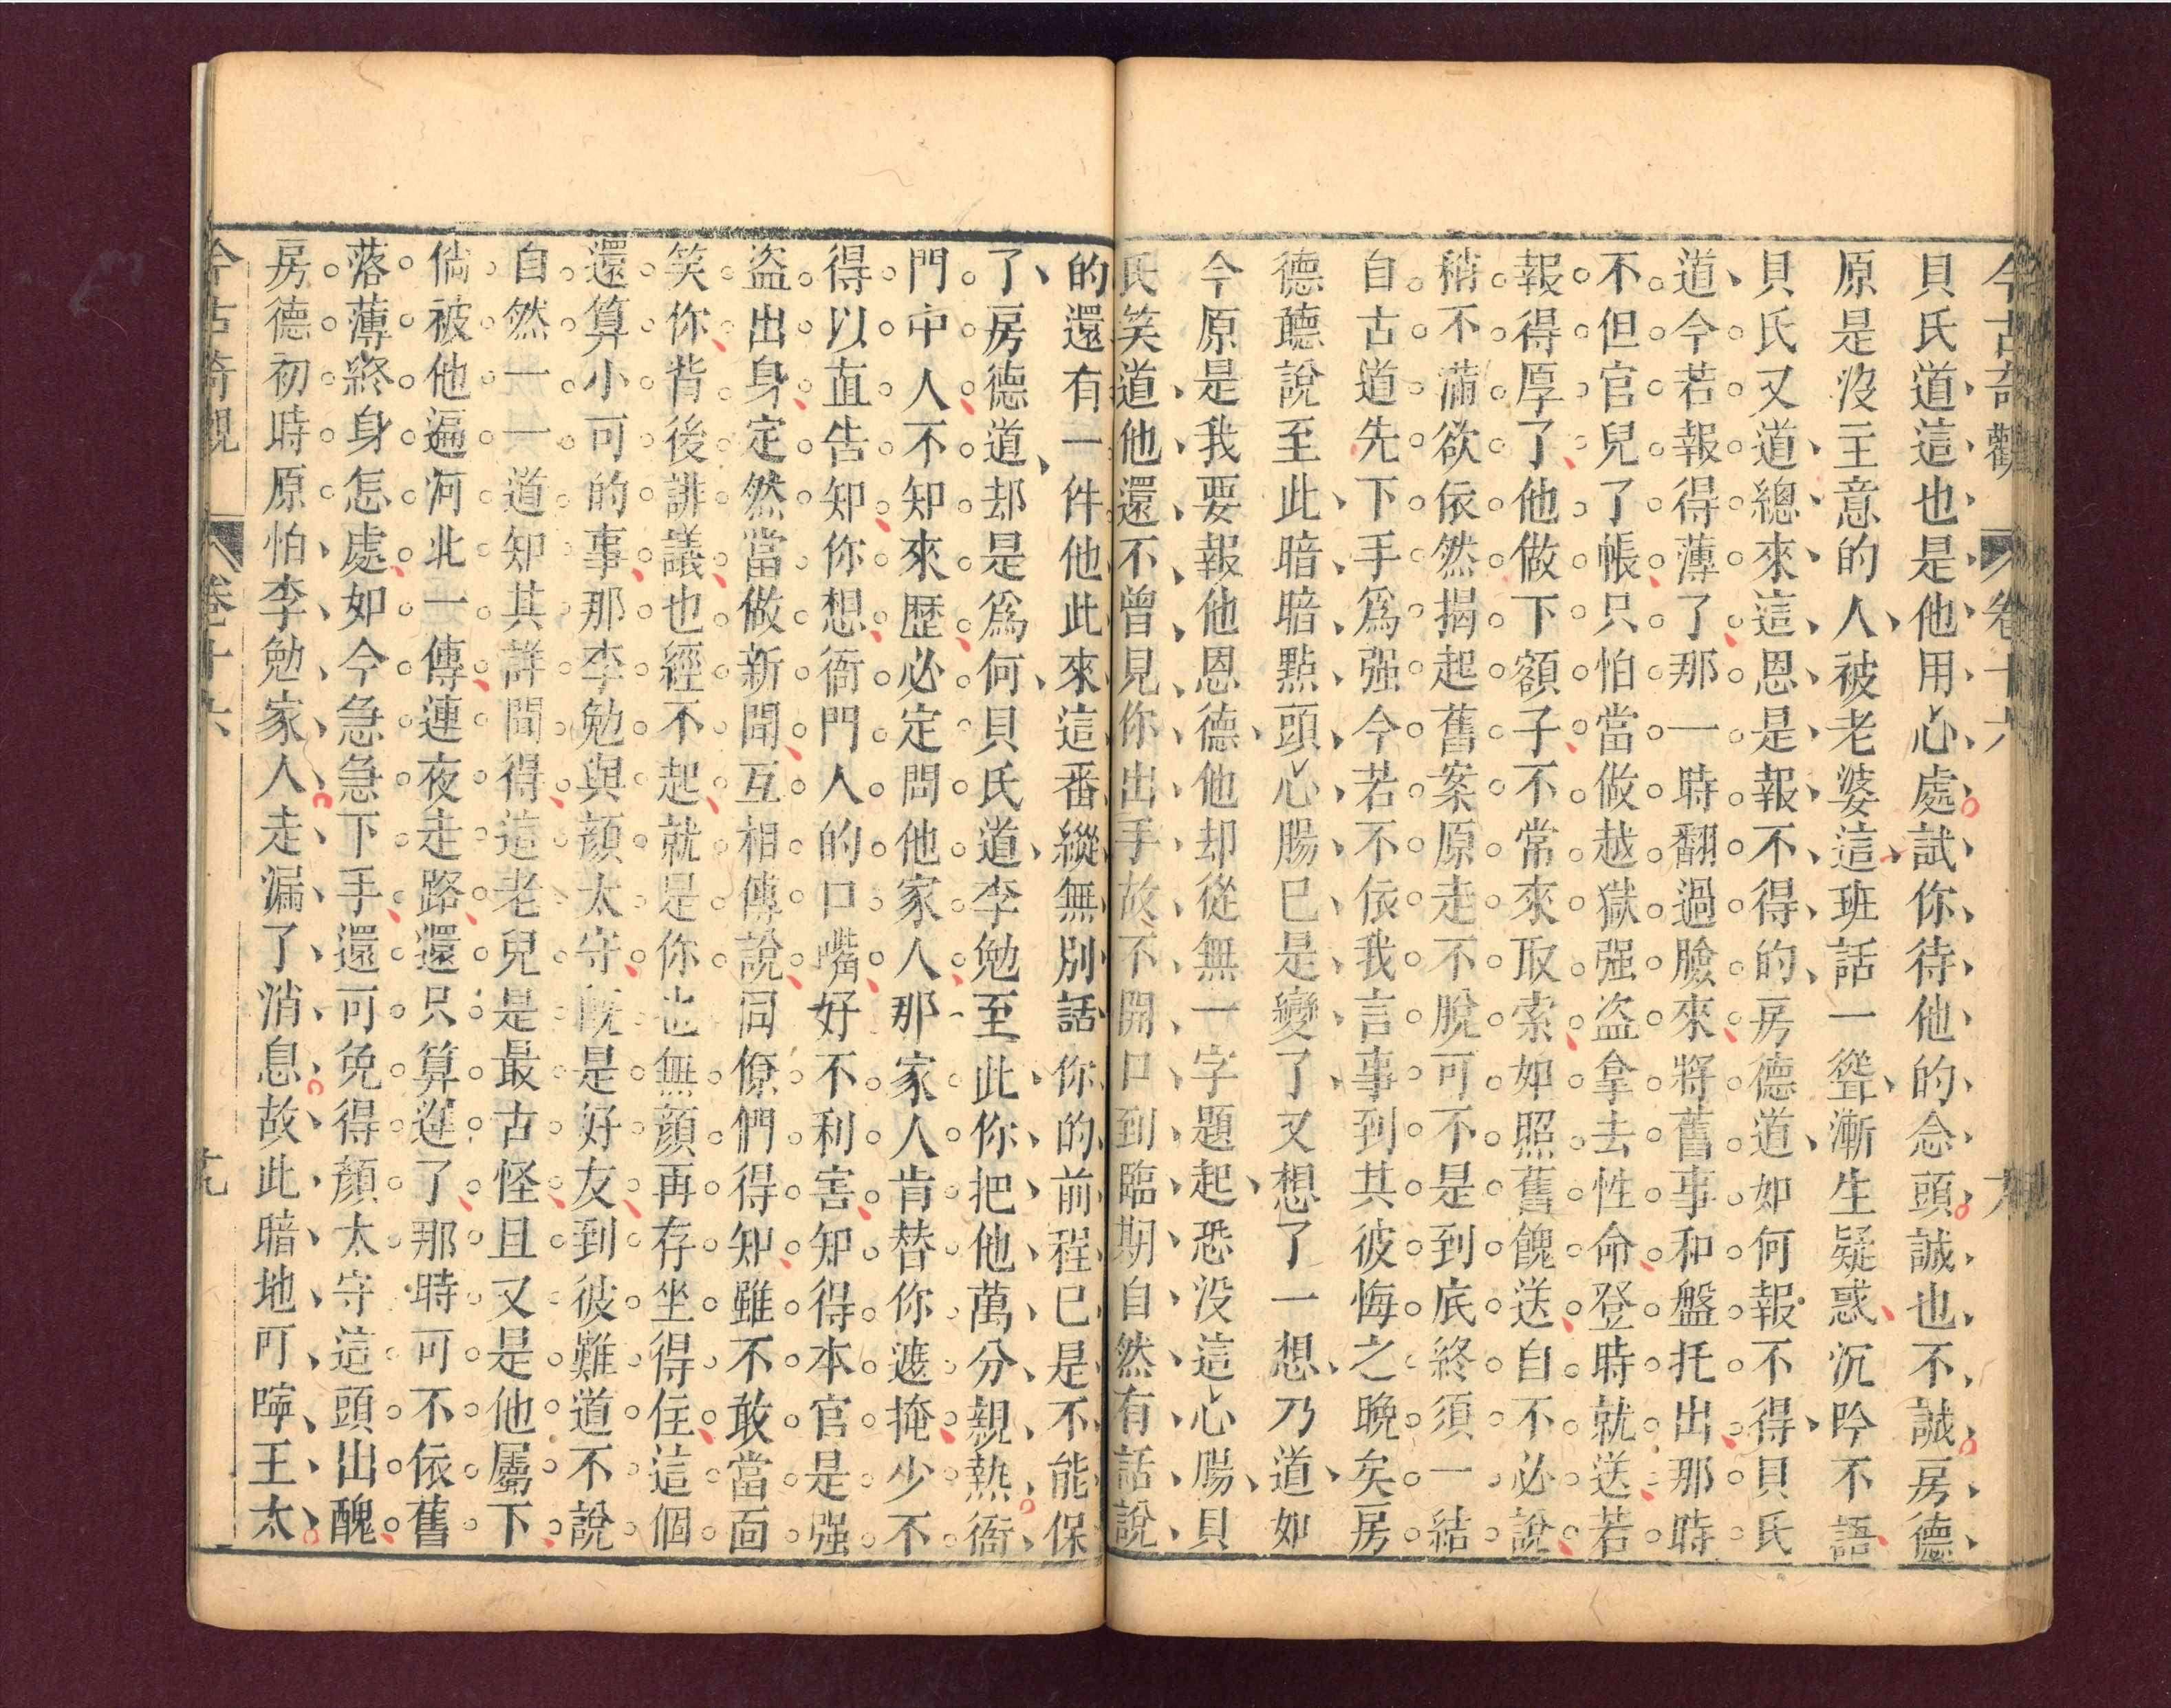 今古奇觀 卷十六
貝氏道這也是他用心處試你待他的念頭誠也不誠房德
原是沒主意的人被老婆這班話一聳漸生疑惑沉吟不語
貝氏又道總來這恩是報不得的房德道如何報不得貝氏
道今若報得薄了那一時翻過臉來將舊事和盤托出那時
不但官兒了帳只怕當做越獄强盗拿去性命登時就送若
報得厚了他做下額子不常來取索如照舊餽送自不必說
稍不滿欲依然揭起舊案原走不脫可不是到底終須一結
自古道先下手爲强今若不依我言事到其彼悔之晚矣房
德聽說至此暗暗點頭心腸已是變了又想了一想乃道如
今原是我要報他恩德他却從無一字題起恐没這心腸貝
氏笑道他還不曾見你出手故不開口到臨期自然有話說
的還有一件他此來這番縱無別話你的前程已是不能保
了房德道却是爲何貝氏道李勉至此你把他萬分親熱衙
門中人不知來歷必定問他家人那家人肯替你遮掩少不
得以直告知你想衙門人的口嘴好不利害知得本官是强
盗出身定然當做新聞互相傳說同僚們得知雖不敢當面
笑你背後誹議也經不起就是你也無顏再存坐得住這個
還算小可的事那李勉與顔太守既是好友到彼難道不說
自然一一道知其詳聞得這老兒是最古怪且又是他屬下
倘被他遍河北一傳連夜走路還只算遲了那時可不依舊
落薄終身怎處如今急急下手還可免得顔太守這頭出醜
房德初時原怕李勉家人走漏了消息故此暗地叮嚀王太
今古奇觀 卷十六 十九